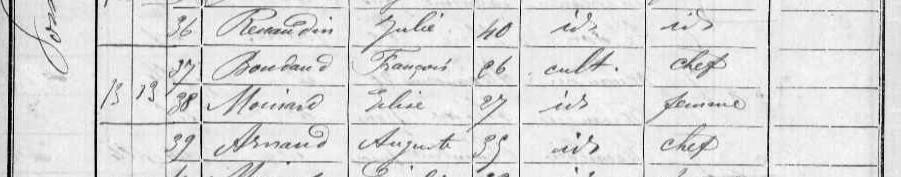 36 Renaudin Julie 40 id id
37 Boudaud François 26 cult. chef
13 13 38 Moinard Elise 27 id femme
39 Arnaud Auguste 35 id chef